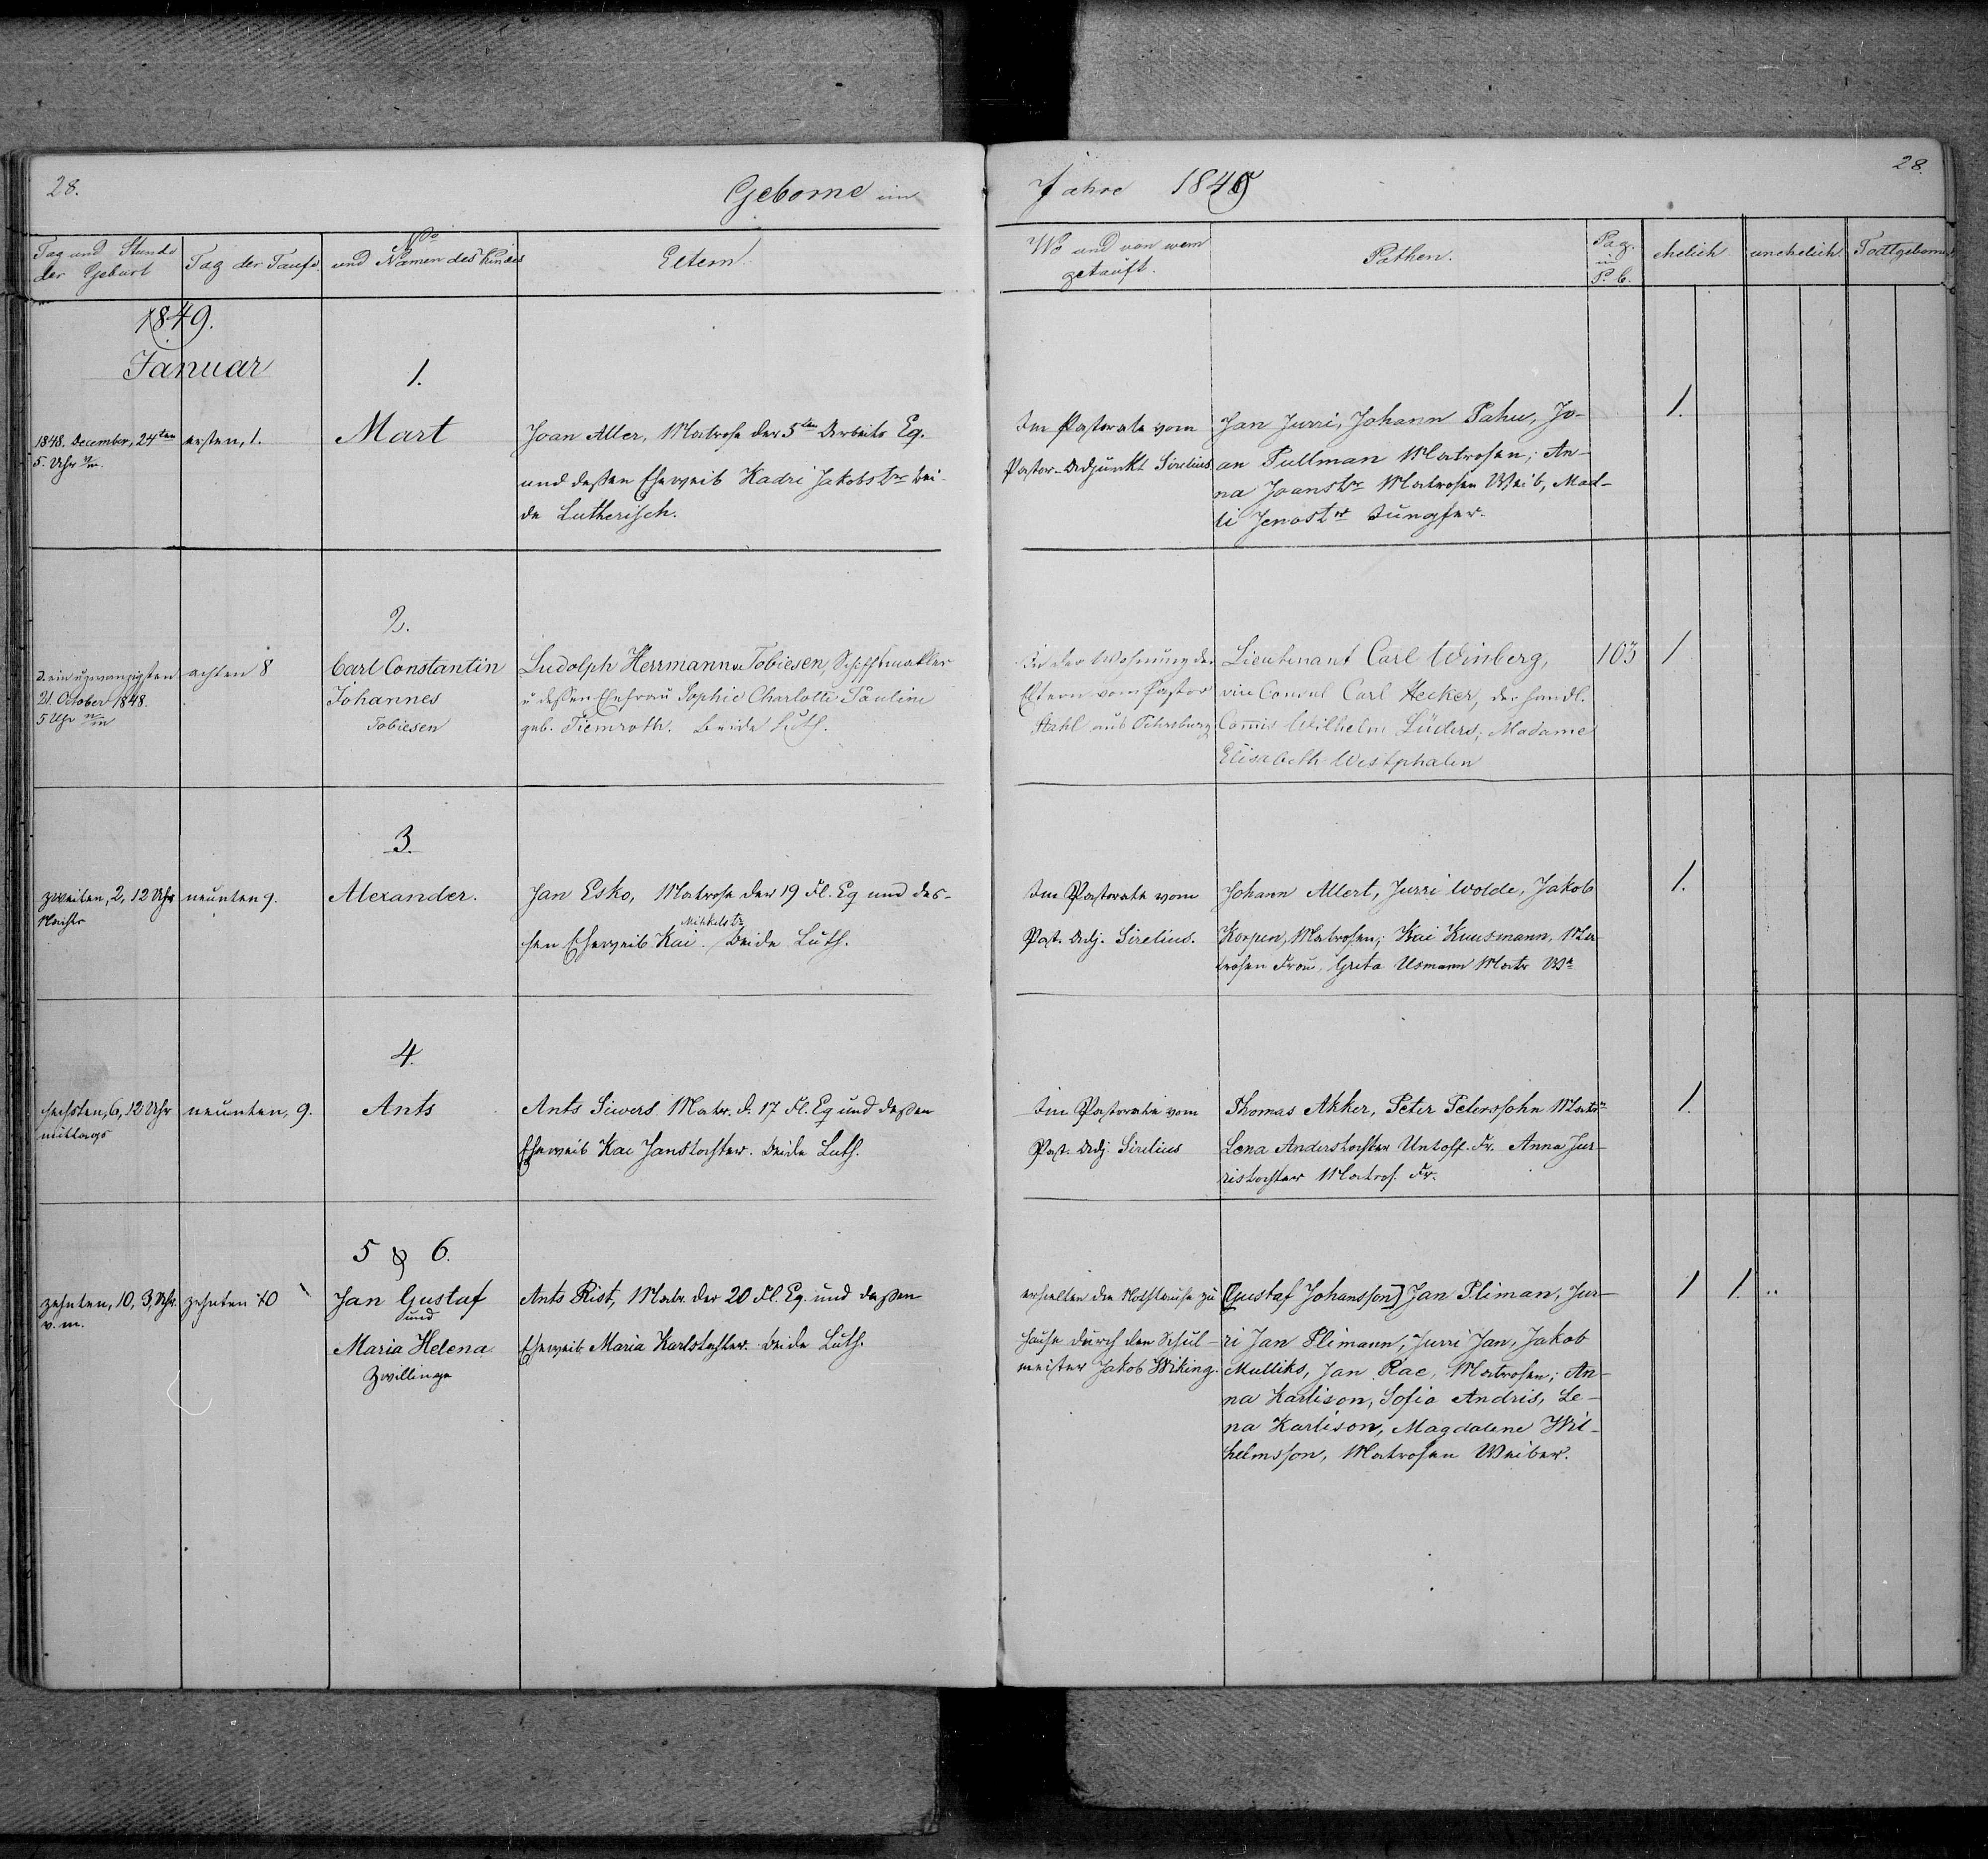 28.
Geborne im
Jahre 1849
28.
Tag und Stunde
der Geburt
Tag der Taufe
No
und Namen des Kindes
Eltern.
Wo und von wem
getauft.
Pathen.
Pag.
im
P. b.
ehelich
unehelich.
Todtgeborne
1849.
Januar
1.
1848. December, 24ten
5. Uhr
ersten, 1.
Mart
Joan Aller, Matrose der 5ten Arbeits Eq.
und deßen Eheweib Kadri Jakobstr bei-
de Lutherisch.
Im Pastorate vom
Pastor-Adjunkt Sirelius
Jan Jurri, Johann Pahu, Jo-
an Pullman Matrosen; An-
na Joanstr Matrosen Weib, Mad-
li Jenostr Jungfer.
1.
2.
d. ein u zwanzigsten
21. October 1848.
5 Uhr
achten 8
Carl Constantin
Johannes
Tobiesen
Ludolph Herrmann Tobiesen, Schiffsmakler
u deßen Ehefrau Sophie Charlotte Pauline
geb. Tiemroth. beide Luth.
In der Wohnung der
Eltern vom Pastor
Stahl aus Petersburg
Lieutenant Carl Winberg,
vice Consul Carl Hecker, der Handl.
Commis Wilhelm Lüders; Madame
Elisabeth Westphalen
103
1
3.
zweiten, 2, 12 Uhr
Nachts
neunten 9.
Alexander.
Jan Esko, Matrose der 19 Fl. Eq und des-
Mihkelstr
sen Eheweib Kai. beide Luth.
Im Pastorate vom
Past. Adj. Sirelius.
Johann Allert, Jurri Wolde, Jakob
Korpen, Matrosen; Kai Kuusmann, Ma-
trosen Frau, Greta Usmann Matr
1.
4.
sechsten, 6, 12 Uhr
mittags
neunten, 9.
Ants
Ants Siwers Matr. d. 17 Fl. Eq und deßen
Eheweib Kai Janstochter. beide Luth.
Im Pastorate vom
Past. Adj. Sirelius
Thomas Akker, Peter Peterssohn Matr
Lena Anderstochter Untoff. Fr. Anna Jur-
ristochter Matros. Fr.
1.
5 & 6.
zehnten, 10, 3, Uhr
v. m.
zehnten 10
Jan Gustaf
und
Maria Helena
Zwillinge
Ants Rist, Matr. der 20 Fl. Eq. und deßen
Eheweib Maria Karlstochter. beide Luth.
erhielten die Nothtaufe zu
Hause durch den Schul-
meister Jakob Wiking.
[Gustaf Johansson] Jan Pliman, Jur-
ri Jan Plimann, Jurri Jan, Jakob
Mulliks, Jan Rae, Matrosen; An-
na Karlison, Sofia Andris, Le-
na Karlison, Magdalene Wil-
helmsson, Matrosen Weiber.
1 1.